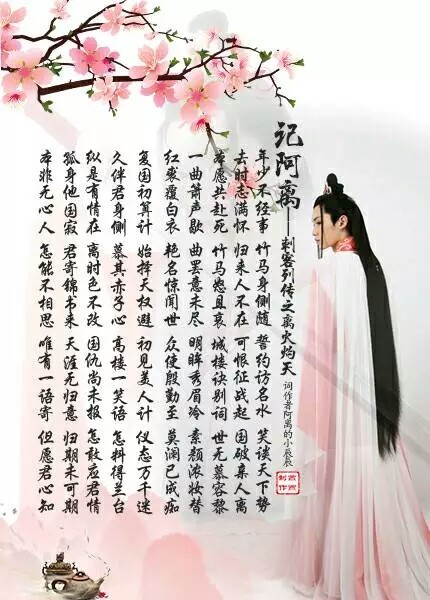 记阿离——刺客列传之离火灼天
词作者阿离的小辰辰
年少不经事 竹马身侧随 誓约访名水 笑谈天下势
去时志满怀 归来人不在 可恨征战起 国破亲人离
本愿共赴死 竹马怒且哀 城楼诀别词 世无慕容黎
一曲箫声歇 曲罢意未尽 明眸秀眉冷 素颜浓妆替
红裳覆白衣 艳名惊闻世 众使殷勤至 莫澜已成痴
复国初算计 始择天权避 初见美人计 仪态万千迷
久伴君身侧 慕其赤子心 高楼一笑语 怎料得兰台
纵是有情在 离时色不改 国仇尚未报 怎敢应君情
孤身他国寂 君寄锦书来 天涯无归意 归期未可期
本非无心人 怎能不相思 唯有一语寄 但愿君心知